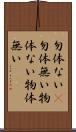 勿体ない
勿体無い物
体ない物体
無い